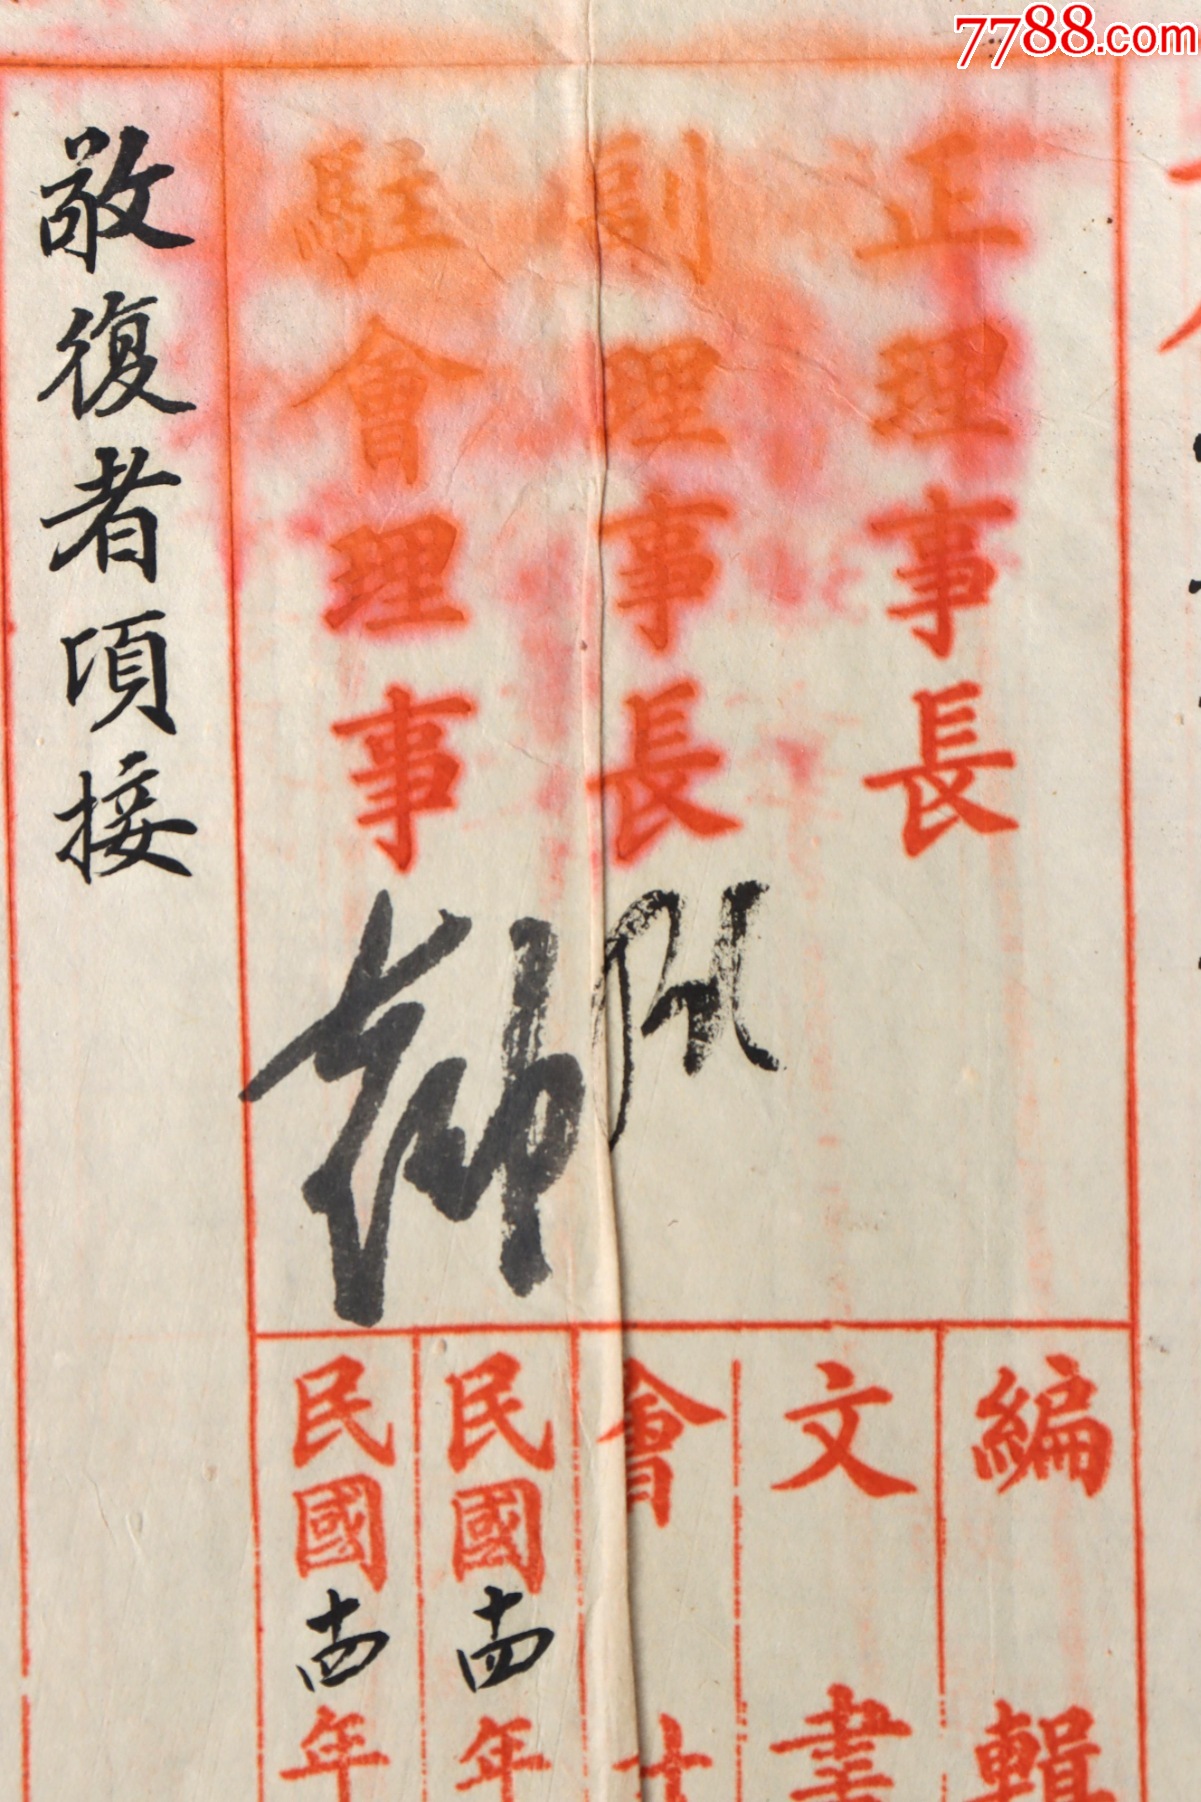 7788.com
正理事長
副理事長
駐會理事
編輯
文書
會
民國十四年
民國十四年
敬復者頃接